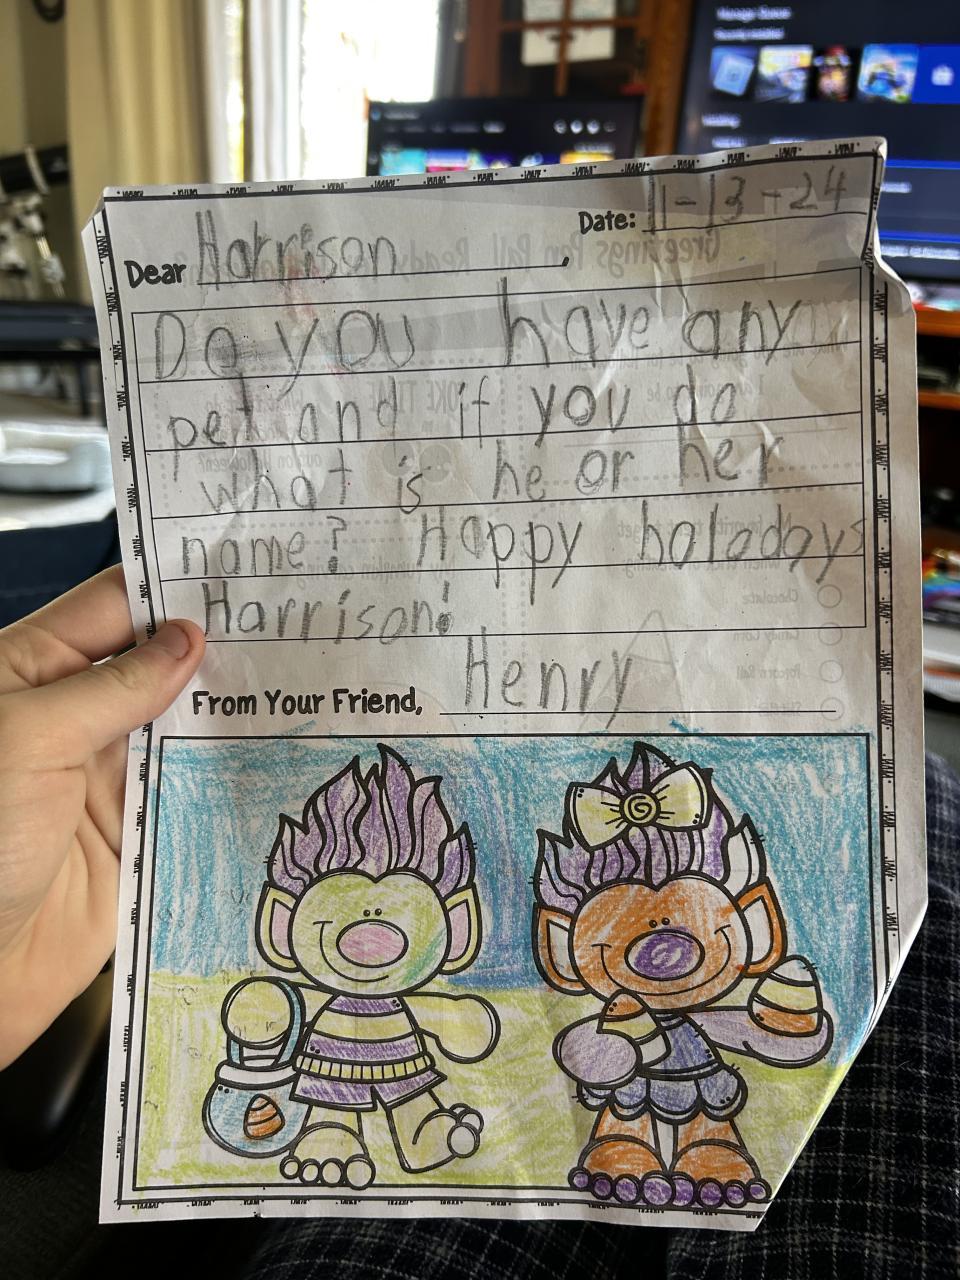 Manage Queue
Date: 11-13-24
Dear Harrison,
Do you have any
pet and if you do
what is he or her
name? Happy holadays
Harrison!
From Your Friend, Henry